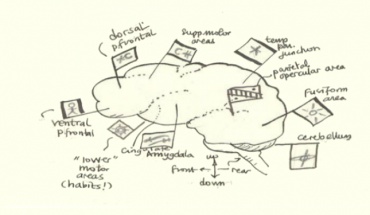 dorsal
pfrontal
Supp.motor
areas
temp
par.
junction
parietal
opercular area
fusiform
area
cerebellum
ventral
pfrontal
"lower"
motor
areas
(habits!)
Cingulate
Amygdala
up
front
rear
down